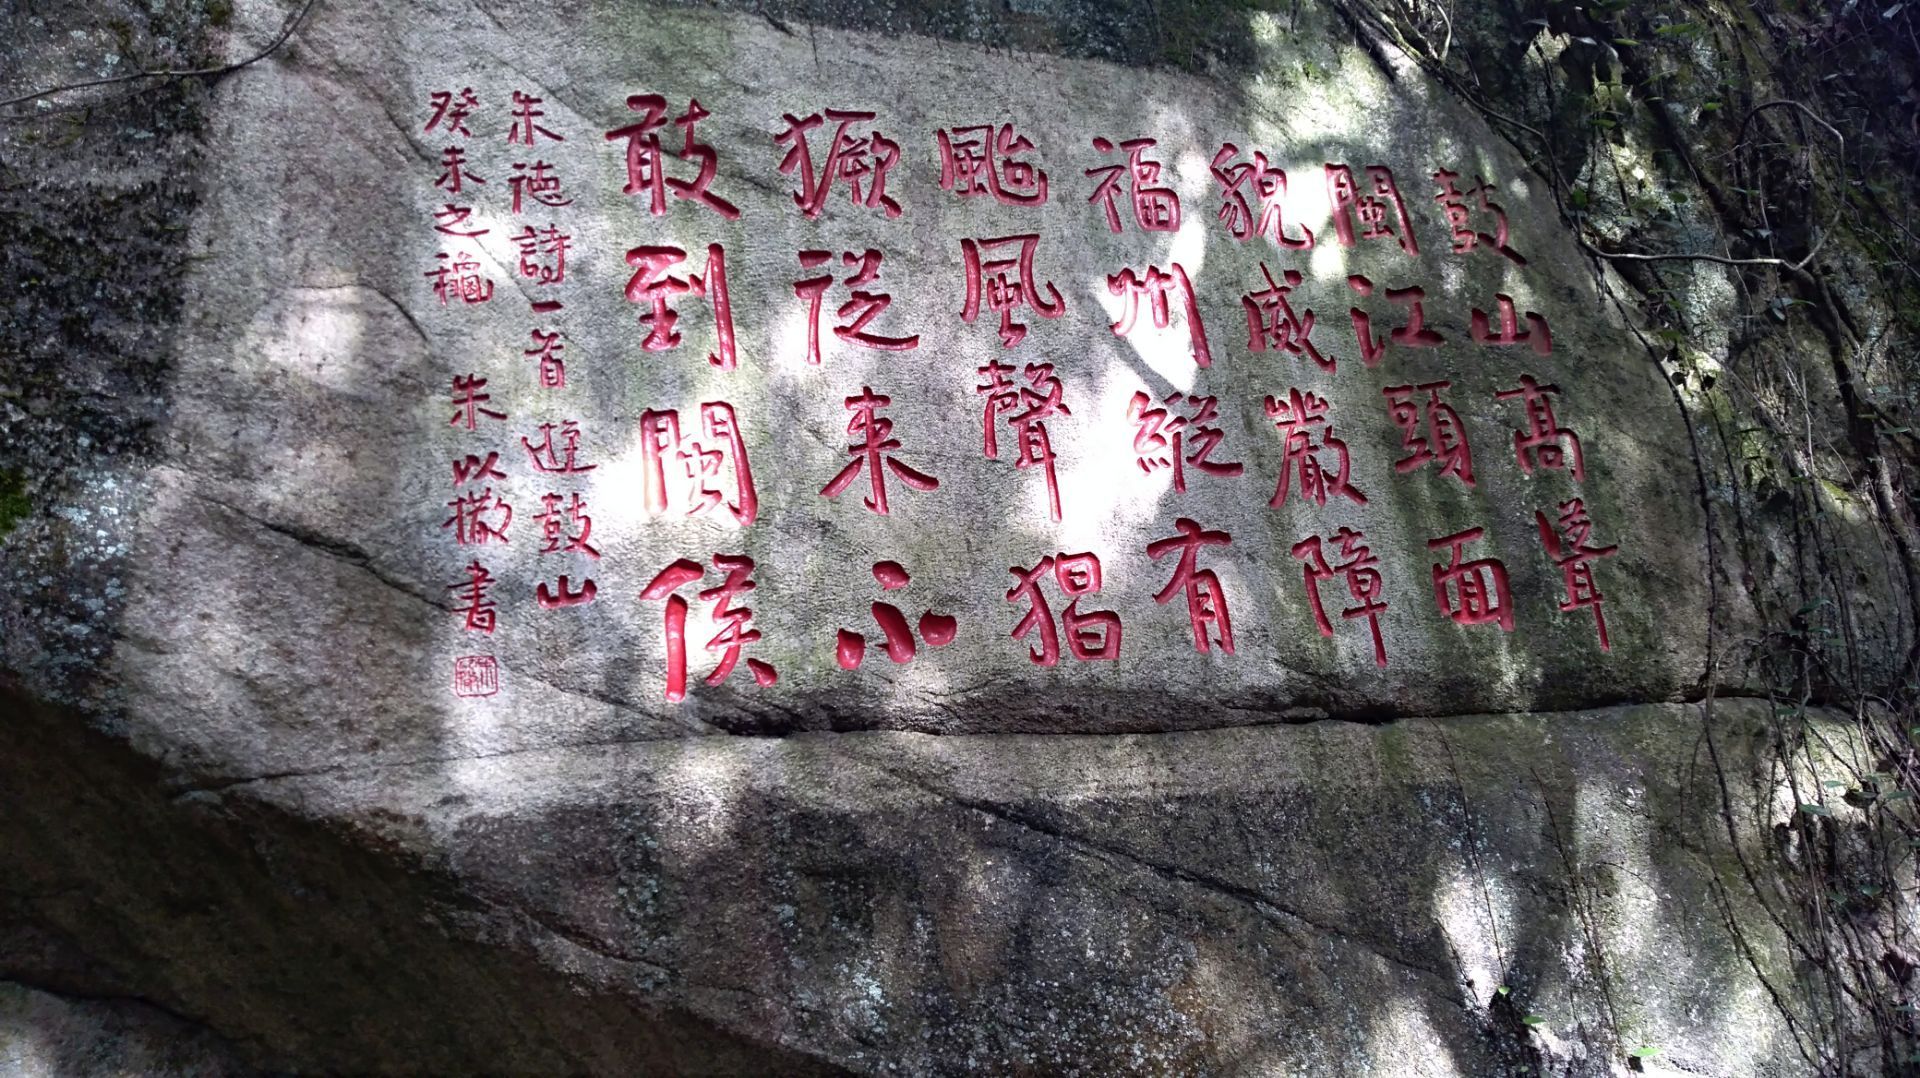 鼓山高聳
閩江頭面
貌威嚴障
福州縱有
颱風聲猖
獗從来不
敢到閩侯
朱德詩一首 遊鼓山
癸未之龝 朱以撒書